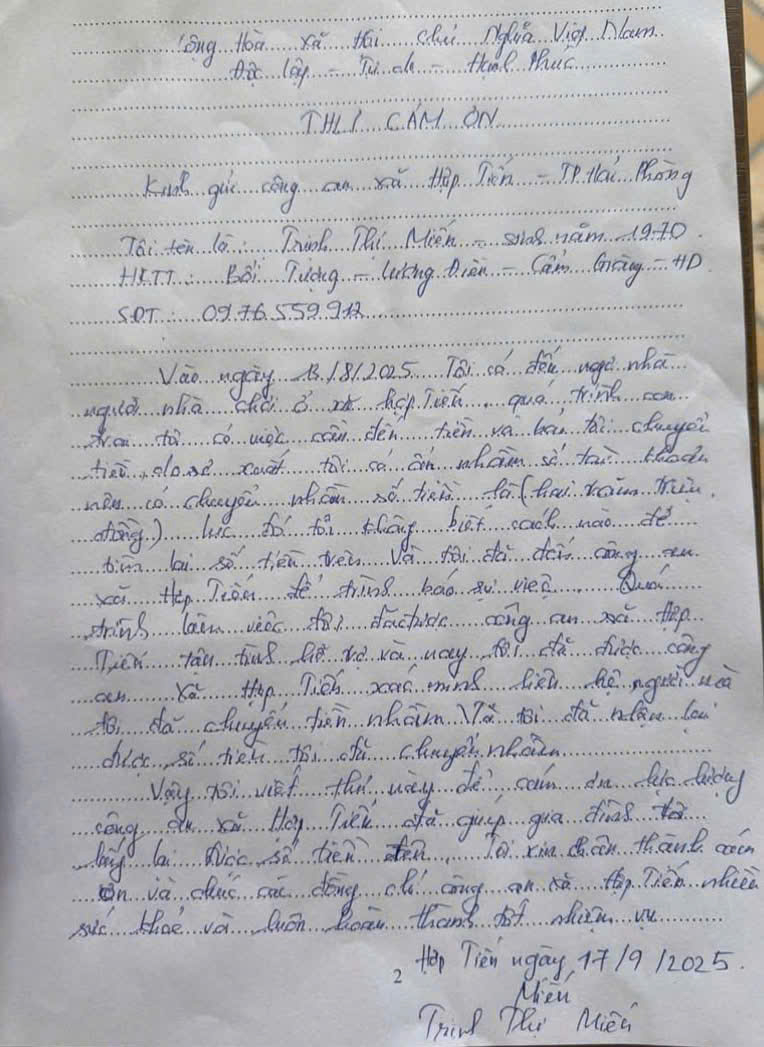 Cộng Hòa xã Hội chủ Nghĩa Việt Nam
Độc lập - Tự do - Hạnh Phúc
THƯ CẢM ƠN
Kính gửi công an xã Hợp Tiến - TP. Hải Phòng
Tôi tên là: Trịnh Thị Miên - sinh năm 1970.
HKTT: Bối Tượng - Lương Điền - Cẩm Giàng - HD
SĐT: 0976.559.912
Vào ngày 13/8/2025 Tôi có đến ngơi nhà
người nhà chơi ở xã hợp Tiến, quá trình con
trai tôi có việc cần đến tiền và bảo tôi chuyển
tiền, do sơ xuất tôi có ấn nhầm số tài khoản
nên có chuyển nhầm số tiền là (hai trăm triệu
đồng). lúc đó tôi không biết cách nào để
tìm lại số tiền trên. Và tôi đã đến công an
xã Hợp Tiến để trình báo sự việc. Quá
trình làm việc tôi đã được công an xã Hợp
Tiến tận tình hỗ trợ và nay tôi đã được công
an xã Hợp Tiến xác minh liên hệ người mà
tôi đã chuyển tiền nhầm. Và tôi đã nhận lại
được số tiền tôi đã chuyển nhầm
Vậy tôi viết thư này để cảm ơn lực lượng
công an xã Hợp Tiến đã giúp gia đình tôi
lấy lại được số tiền trên. Tôi xin chân thành cảm
ơn và chúc các đồng chí công an xã Hợp Tiến nhiều
sức khoẻ và luôn hoàn thành tốt nhiệm vụ
Hợp Tiến ngày 17/9/2025.
2
Miên
Trịnh Thị Miên